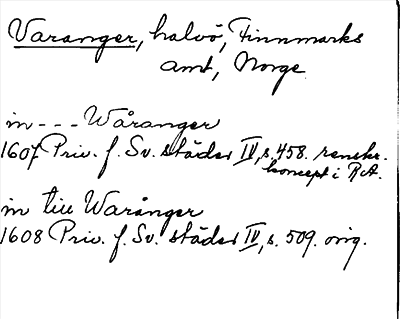 Varanger, halvö, Finnmarks
amt, Norge
in --- Wåranger
1607 Priv. f. Sv. städer IV, s. 458. renskr.
koncept i RA.
in till Waränger
1608 Priv. f. Sv. städer IV, s. 509. orig.